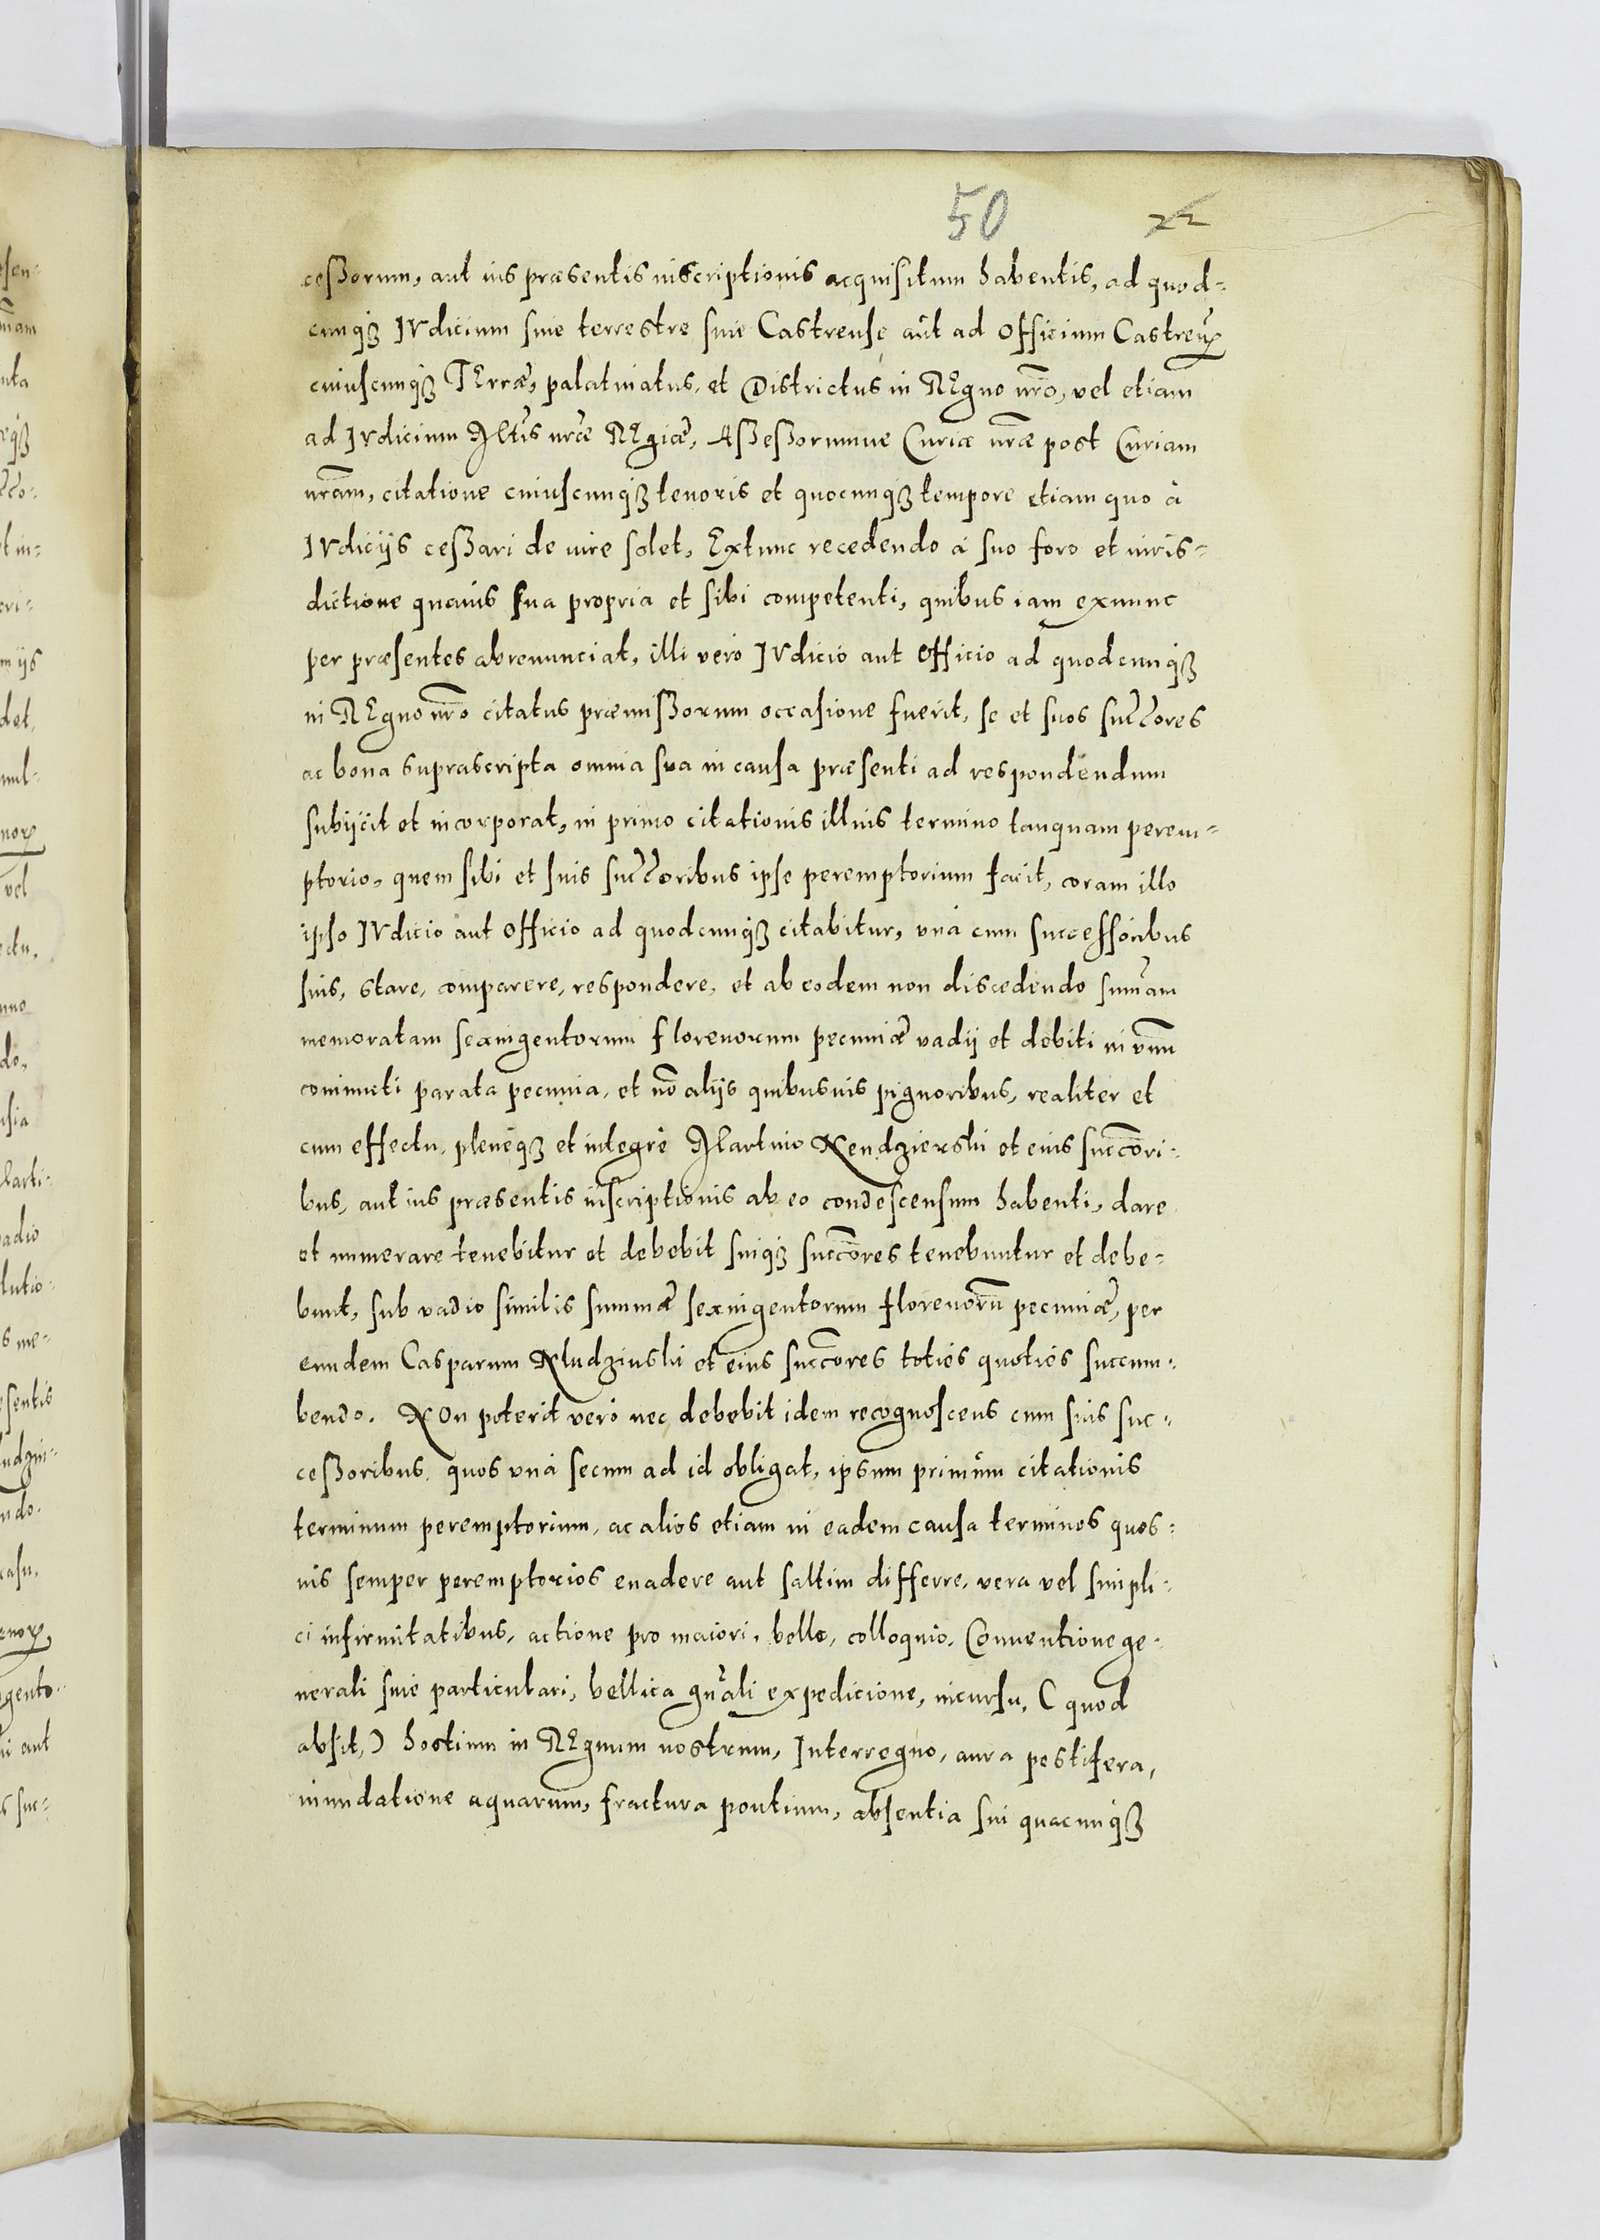 50 22
cessorum, aut ius præsentis inscriptionis acquisitum habentis, ad quod-
cunq3 IVdicium siue terrestre siue Castrense aut ad Officium Castren̄
cuiuscunq3 TErræ, palatinatus, et Districtus in REgno nr̄o, vel etiam
ad IVdicium Mtis nr̄æ REgiæ, Assessorumue Curiæ nr̄æ post Curiam
nr̄am, citatione cuiuscunq3 tenoris et quocunq3 tempore etiam quo à
IVdicijs cessari de iure solet, Extunc recedendo à suo foro et iuris-
dictione quauis sua propria et sibi competenti, quibus iam exnunc
per præsentes abrenunciat, illi verò IVdicio aut Officio ad quodcunq3
in REgno nr̄o citatus præmissorum occasione fuerit, se et suos succ̄ores
ac bona suprascripta omnia sua in causa præsenti ad respondendum
subijcit et incorporat, in primo citationis illius termino tanquam perem-
ptorio, quem sibi et suis succ̄oribus ipse peremptorium facit, coram illo
ipso IVdicio aut Officio ad quodcunq3 citabitur, vnà cum successoribus
suis, stare, comparere, respondere, et ab eodem non discedendo sum̄am
memoratam sexingentorum florenorum pecuniæ vadij et debiti in vnum
coniuncti parata pecunia, et nō alijs quibusuis pignoribus, realiter et
cum effectu, pleneq3 et integrè Martino Kendzierski et eius succ̄ori-
bus, aut ius præsentis inscriptionis ab eo condescensum habenti, dare
et numerare tenebitur et debebit suiq3 succ̄ores tenebuntur et debe-
bunt, sub vadio similis summæ sexingentorum florenorū pecuniæ, per
eundem Casparum Kludzinski et eius succ̄ores toties quoties succum-
bendo. NOn poterit verò nec debebit idem recognoscens cum suis suc-
cessoribus, quos vnà secum ad id obligat, ipsum primum citationis
terminum peremptorium, ac alios etiam in eadem causa terminos quos-
uis semper peremptorios euadere aut saltim differre, vera vel simpli-
ci infirmitatibus, actione pro maiori, bello, colloquio, Conuentione ge-
nerali siue particulari, bellica gn̄ali expedicione, incursu, ( quod
absit,) hostium in REgnum nostrum, Interregno, aura pestifera,
inundatione aquarum, fractura pontium, absentia sui quacunq3